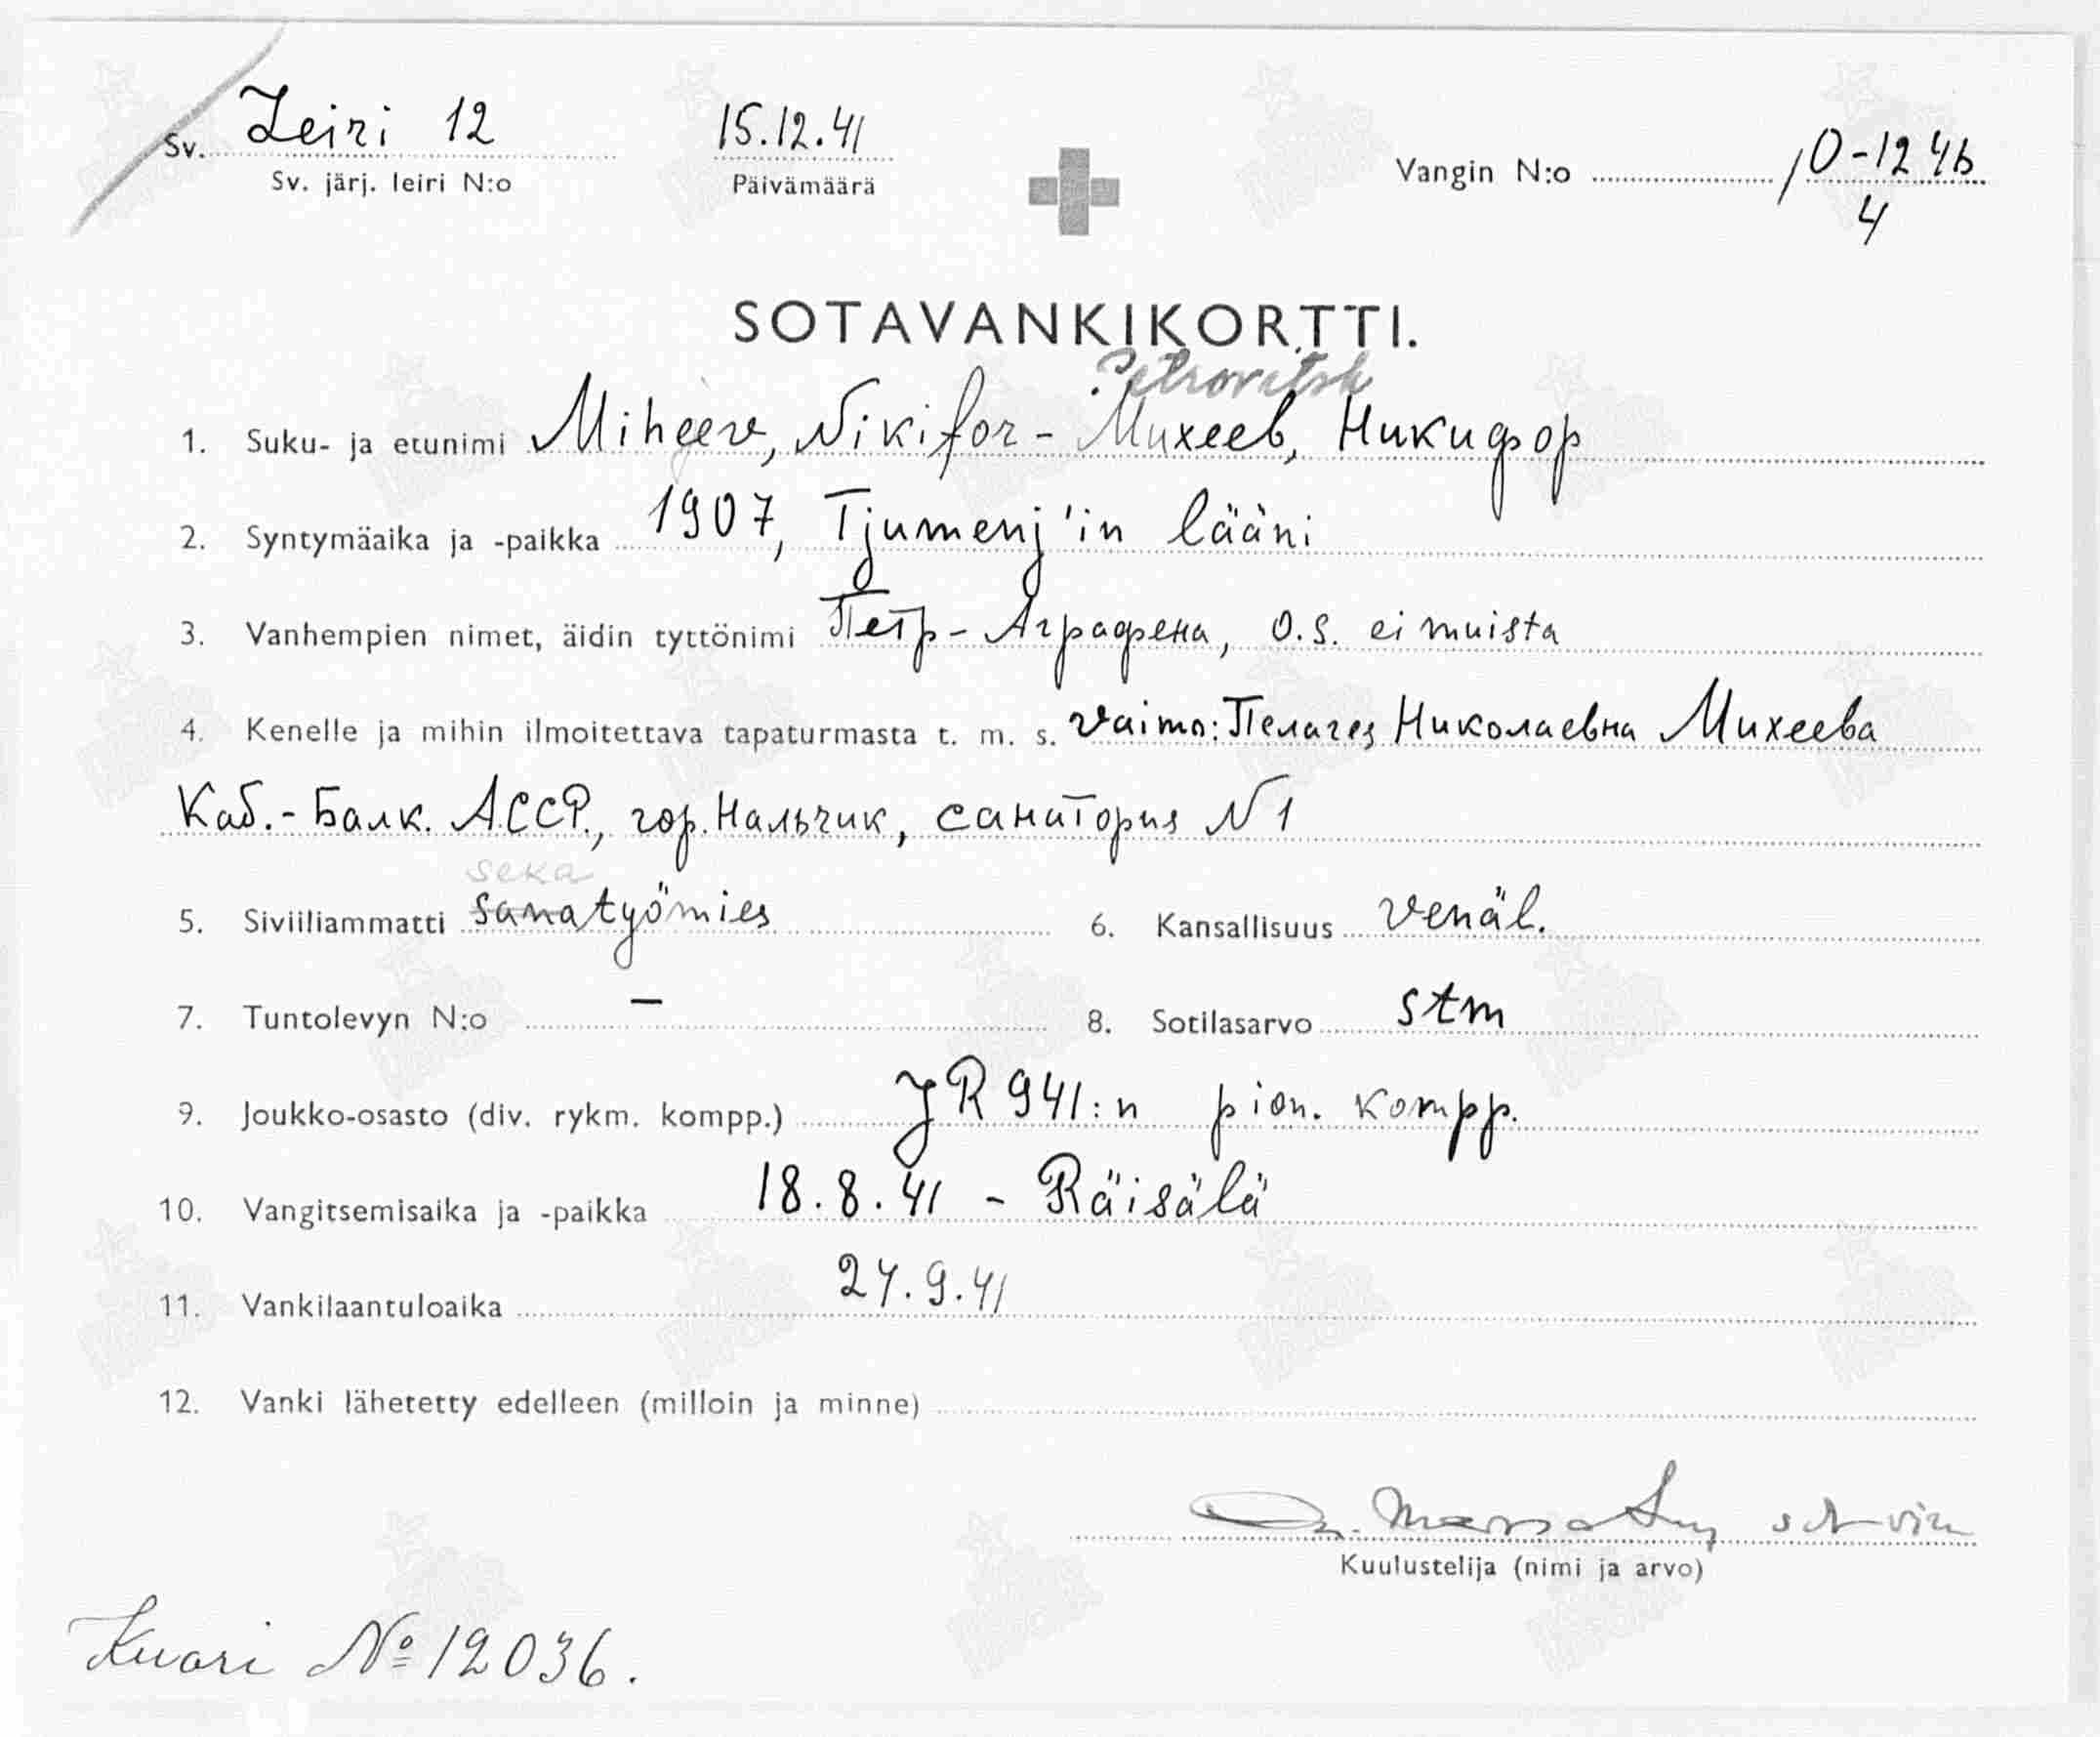 Sv. Leiri 12 15.12.41 Vangin N:o 10-1246
Sv. järj. leiri N:o Päivämäärä 4
SOTAVANKIKORTTI.
Petrovitsh
1. Suku- ja etunimi Miheev, Nikifor - Михеев, Никифор
2. Syntymäaika ja -paikka 1907, Tjumenj'in lääni
3. Vanhempien nimet, äidin tyttönimi Петр - Аграфена, o.s. ei muista
4. Kenelle ja mihin ilmoitettava tapaturmasta t. m. s. vaimo: Пелагея Николаевна Михеева
Каб.-Балк. АССР, гор. Нальчик, санатория N 1
seka
5. Siviiliammatti sanatyömies 6. Kansallisuus venäl.
7. Tuntolevyn N:o - 8. Sotilasarvo stm
9. Joukko-osasto (div. rykm. kompp.) JR 941:n pion. kompp.
10. Vangitsemisaika ja -paikka 18.8.41 - Räisälä
11. Vankilaantuloaika 24.9.41
12. Vanki lähetetty edelleen (milloin ja minne)
Kuulustelija (nimi ja arvo)
Kuori № 12036.